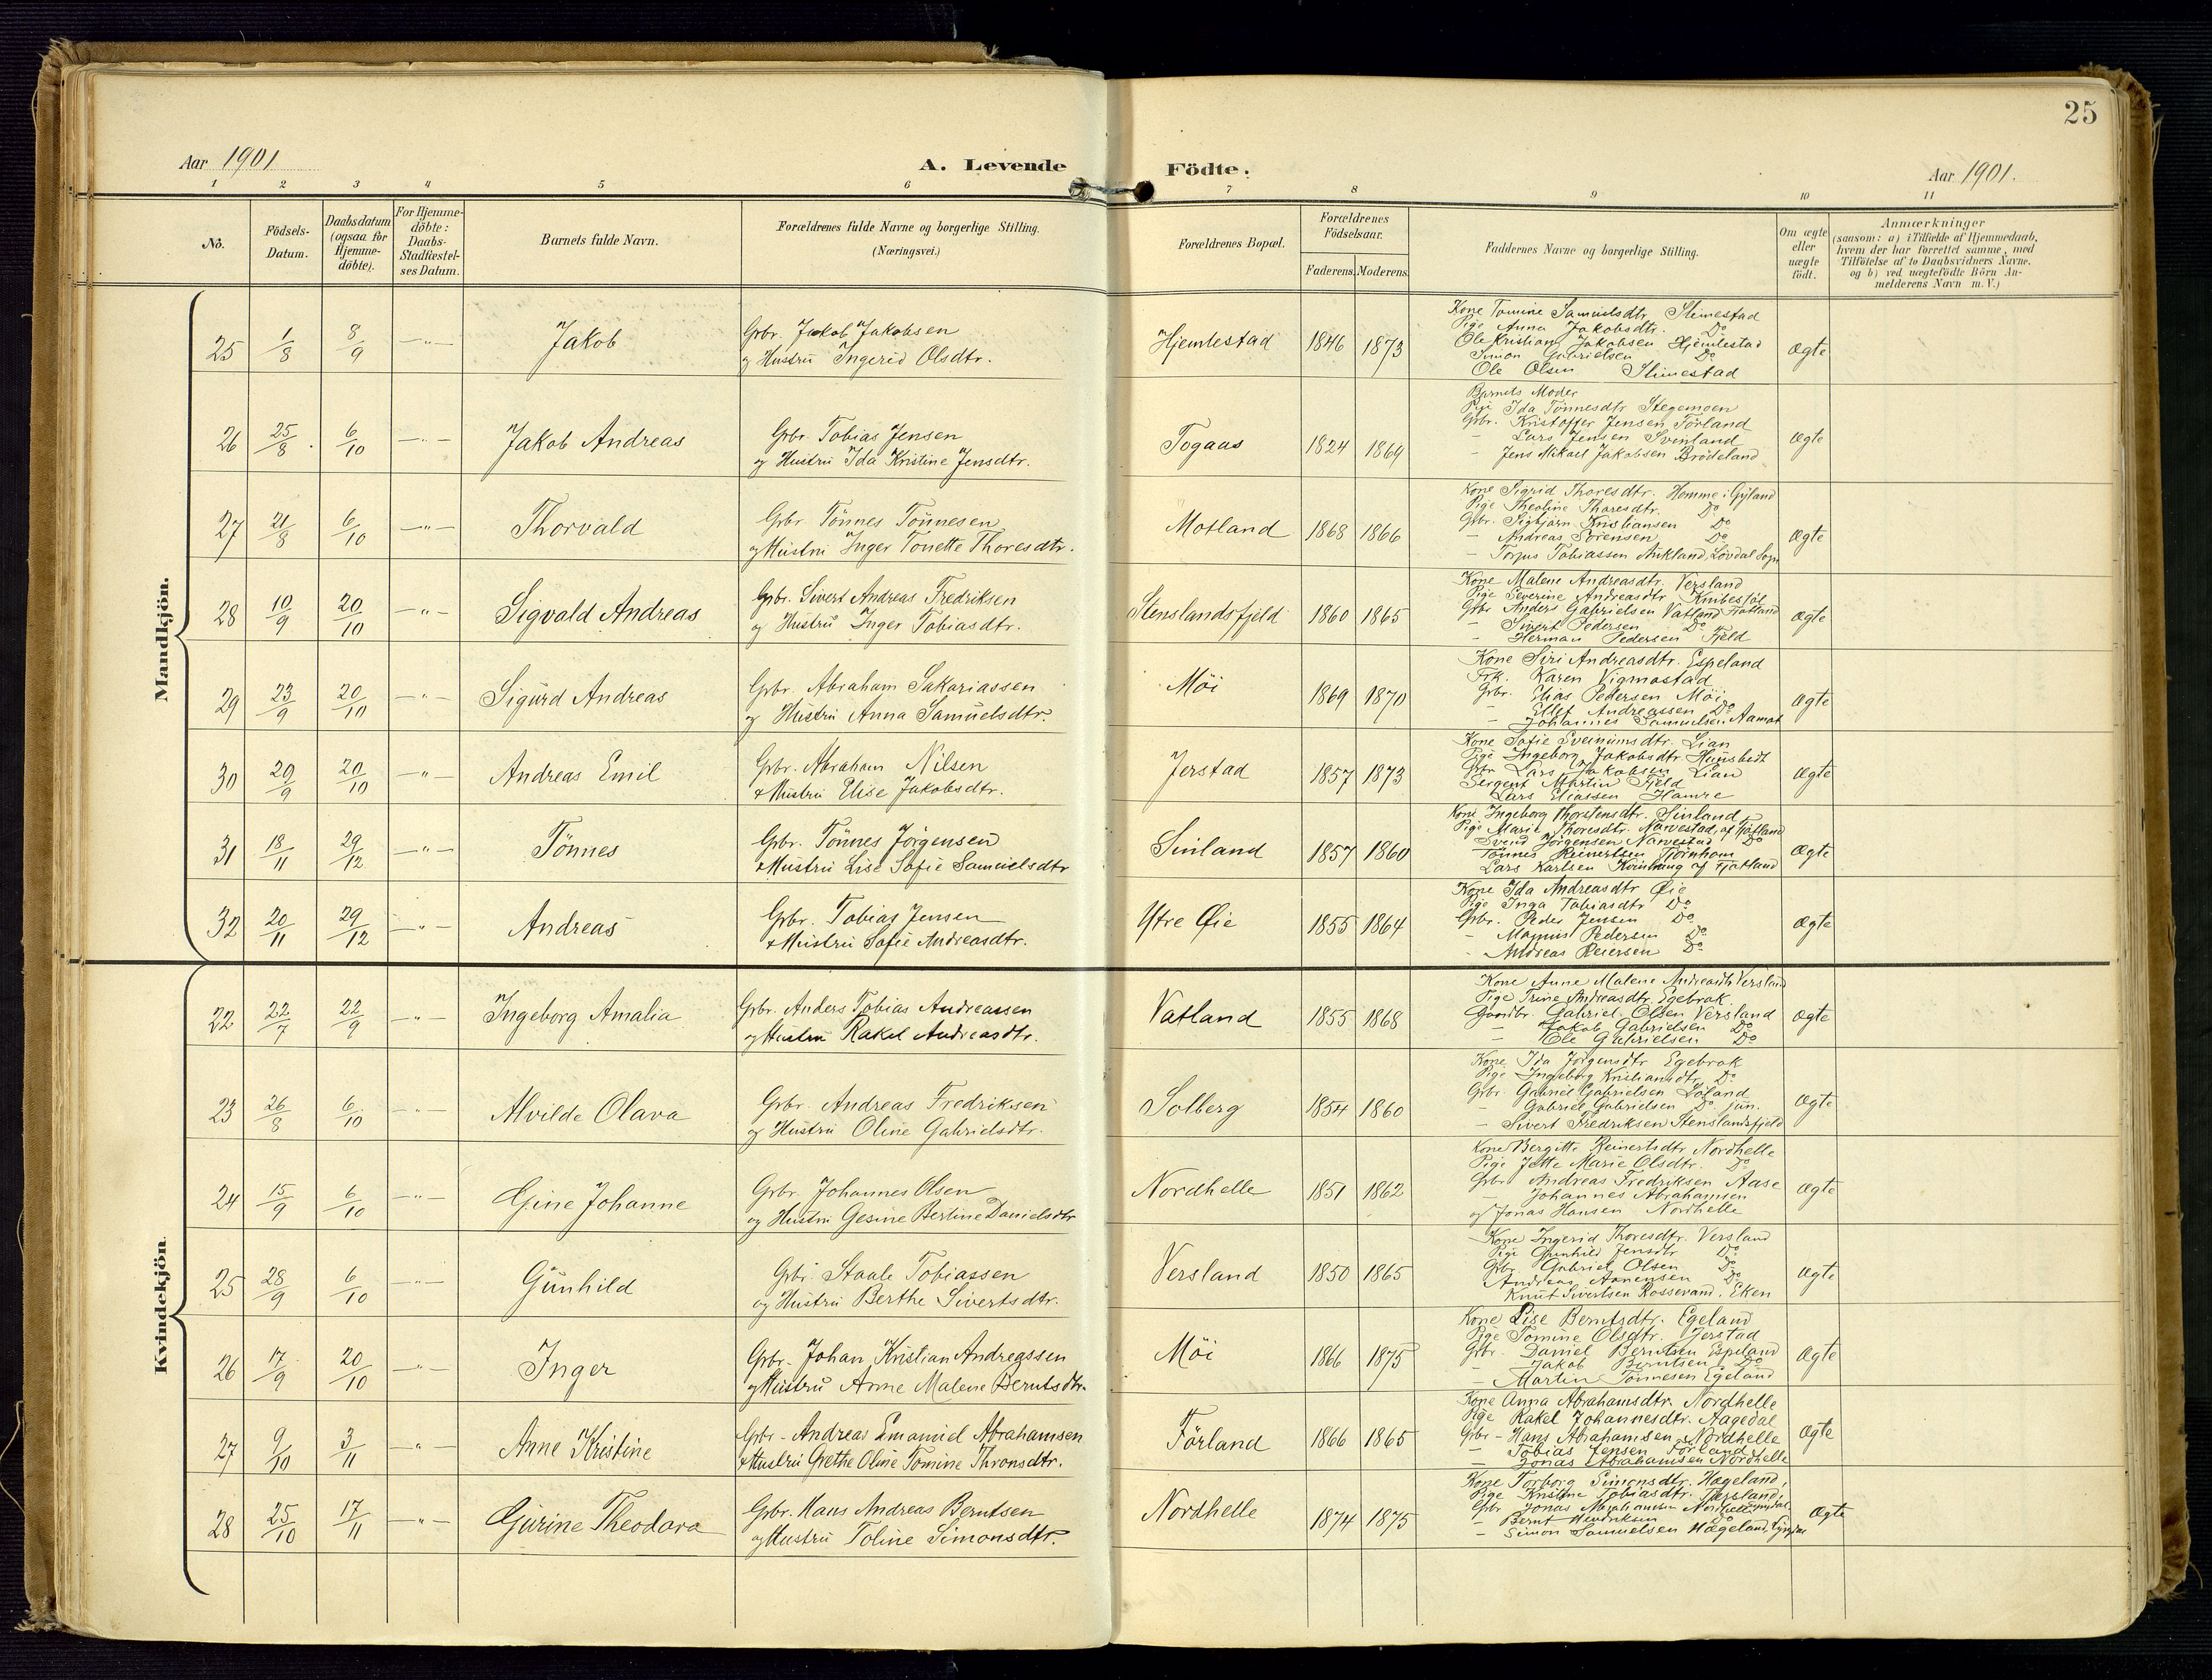 25
Aar 1901
A. Levende Födte.
Aar 1901.
1 2 3 4 5 6 7 8 9 10 11
No.
Födsels-Datum.
Daabsdatum (ogsaa for Hjemme-döbte).
For Hjemme-döbte: Daabs-Stadfæstel-ses Datum.
Barnets fulde Navn.
Forældrenes fulde Navne og borgerlige Stilling.
(Næringsvei.)
Forældrenes Bopæl.
Forældrenes Födselsaar.
Faderens. Moderens.
Faddernes Navne og borgerlige Stilling.
Om ægte eller uægte födt.
Anmærkninger
(saasom: a) i Tilfælde af Hjemmedaab, hvem der har forrettet samme, med Tilföielse af to Daabsvidners Navne, og b) ved uægtefödte Börn An-melderens Navn m. V.)
Mandkjön.
25 1/8 8/9 —"— Jakob
Grbr. Jakob Jakobsen
og Hustru Ingerid Olsdtr.
Hjemlestad 1846 1873
Kone Tomine Samuelsdtr. Stimestad
Pige Anna Jakobsdtr. Do
Ole Kristian Jakobsen Hjemlestad
Simon Gabrielsen Do
Ole Olsen Stimestad
Ægte
26 25/8 6/10 —"— Jakob Andreas
Grbr. Tobias Jensen
og Hustru Ida Kristine Jensdtr.
Togaas 1824 1869
Barnets Moder
Pige Ida Tönnesdtr Stegemoen
Grbr. Kristoffer Jensen Förland
– Lars Jensen Svinland
– Jens Mikael Jakobsen Brödeland
Ægte
27 21/8 6/10 —"— Thorvald
Grbr Tönnes Tönnesen
og Hustru Inger Tonette Thoresdtr.
Motland 1868 1866
Kone Sigrid Thoresdtr. Homme i Gyland
Pige Theoline Thoresdtr. Do
Grbr. Sigbjörn Kristiansen Do
– Andreas Sörensen Do
– Torjus Tobiassen Aukland, Lövdal Sogn
Ægte
28 10/9 20/10 —"— Sigvald Andreas
Grbr. Sivert Andreas Fredriksen
og Hustru Inger Tobiasdtr.
Stenslandsfjeld 1860 1865
Kone Malene Andreasdtr. Versland
Pige Severine Andreasdtr Knibestöl
Grbr Anders Gabrielsen Vatland Fjotland
– Sivert Pedersen Do
– Herman Pedersen Fjeld
Ægte
29 23/9 20/10 —"— Sigurd Andreas
Grbr. Abraham Sakariassen
og Hustru Anna Samuelsdtr.
Möi 1869 1870
Kone Siri Andreasdtr. Espeland
Frk. Karen Vigmostad
Grbr. Elias Pedersen Möi
– Ellef Andreassen Do
– Johannes Samuelsen Aamot
Ægte
30 29/9 20/10 —"— Andreas Emil
Grbr. Abraham Nilsen
& Hustru Elise Jakobsdtr.
Jerstad 1857 1873
Kone Sofie Sveinumsdtr. Lian
Pige Ingeborg Jakobsdtr. Hunsbedt
Grbr Lars Jakobsen Lian
Sergent Martin Fjeld
Lars Eliassen Hamre
Ægte
31 18/11 29/12 —"— Tönnes
Grbr. Tönnes Jörgensen
& Hustru Lise Sofie Samuelsdtr
Sinland 1857 1860
Kone Ingeborg Thorstensdtr. Sinland
Pige Marie Thoresdtr. Narvestad, af Fjotland
Svend Jörgensen Narvestad Do
Tönnes Reinertsen Tjörnhom
Lars Karlsen Kvinlaug af Fjotland
Ægte
32 20/11 29/12 —"— Andreas
Grbr. Tobias Jensen
& Hustru Sofie Andreasdtr.
Ytre Øie 1855 1864
Kone Ida Andreasdtr Øie
Pige Inga Tobiasdtr Do
Grbr. Peder Jensen Do
– Magnus Pedersen Do
– Andreas Reiersen Do
Ægte
Kvindekjön.
22 22/7 22/9 —"— Ingeborg Amalia
Grbr. Anders Tobias Andreassen
og Hustru Rakel Andreasdtr.
Vatland 1855 1868
Kone Anne Malene Andreasdtr Versland
Pige Trine Andreasdtr. Egebrok
Gaardbr. Gabriel Olsen Versland
– Jakob Gabrielsen Do
– Ole Gabrielsen Do
Ægte
23 26/8 6/10 —"— Alvilde Olava
Grbr. Andreas Fredriksen
og Hustru Oline Gabrielsdtr.
Solberg 1854 1860
Kone Ida Jörgensdtr Egebrok
Pige Ingeborg Kristiansdtr Do
Grbr Gabriel Gabrielsen Löland
– Gabriel Gabrielsen Do jun.
– Sivert Fredriksen Stenslandsfjeld
Ægte
24 15/9 6/10 —"— Gine Johanne
Grbr. Johannes Olsen
og Hustru Gesine Bertine Danielsdtr
Nordhelle 1851 1862
Kone Bergitte Reinertsdtr Nordhelle
Pige Jette Marie Olsdtr. Do
Grbr Andreas Fredriksen Aase
– Johannes Abrahamsen
og Jonas Hansen Nordhelle
Ægte
25 28/9 6/10 —"— Gunhild
Grbr. Staale Tobiassen
og Hustru Berthe Sivertsdtr.
Versland 1850 1865
Kone Ingerid Thoresdtr. Versland
Pige Gunhild Jensdtr Do
Grbr. Gabriel Olsen Do
Andreas Aanensen Do
Knut Sivertsen Rossevand, Eken
Ægte
26 17/9 20/10 —"— Inger
Grbr. Johan Kristian Andreassen
og Hustru Anne Malene Berntsdtr.
Möi 1866 1875
Kone Lise Berntsdtr. Egeland
Pige Tomine Olsdtr. Jerstad
Grbr. Daniel Berntsen Espeland
– Jakob Berntsen Do
– Martin Tönnesen Egeland
Ægte
27 9/10 3/11 —"— Anne Kristine
Grbr – Andreas Emanuel Abrahamsen
& Hustru Grethe Oline Tomine Thronsdtr.
Förland 1866 1865
Kone Anna Abrahamsdtr. Nordhelle
Pige Rakel Johannesdtr. Aagedal
Grbr – Hans Abrahamsen Nordhelle
– Tobias Jensen Förland
– Jonas Abrahamsen Nordhelle
Ægte
28 25/10 17/11 —"— Gurine Theodora
Grbr. Hans Andreas Berntsen
og Hustru Toline Simonsdtr.
Nordhelle 1874 1875
Kone Torborg Simonsdtr. Hægeland,
Pige Kristine Tobiasdtr.
Grbr Jonas Abrahamsen Nordhelle
– Bernt Hendriksen Do
– Simon Samuelsen Hægeland, Lyngdal
Ægte